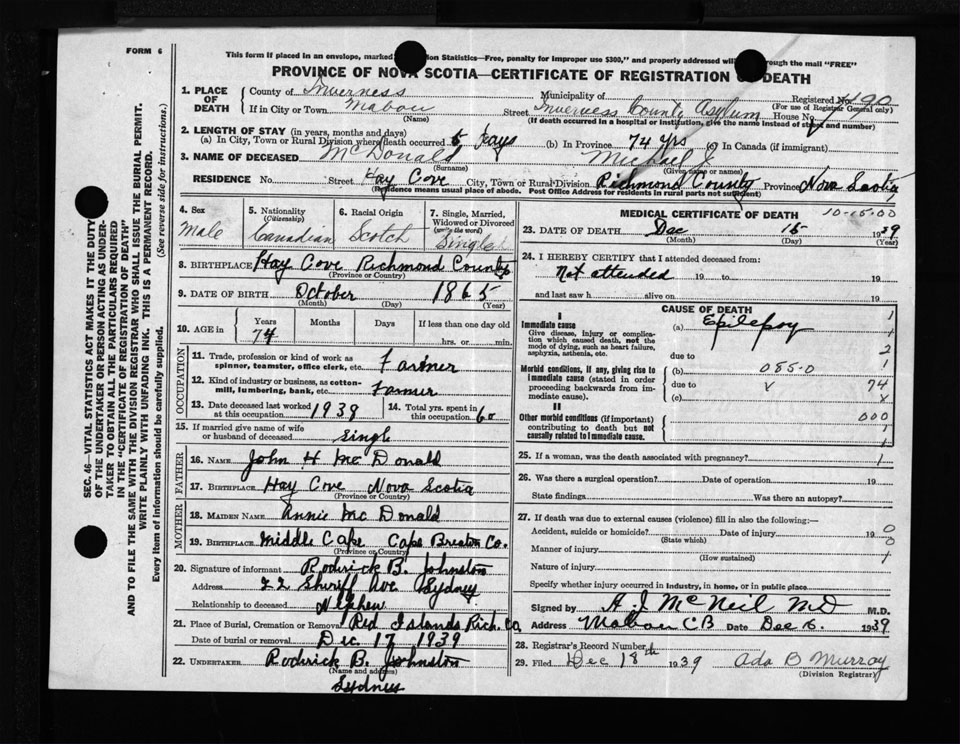 FORM 6
This form if placed in an envelope, marked on Statistics—Free, penalty for improper use $300," and properly addressed will through the mail "FREE"
PROVINCE OF NOVA SCOTIA—CERTIFICATE OF REGISTRATION OF DEATH
1. PLACE OF DEATH
County of Inverness Municipality of Registered No. 490
(For use of Registrar General only)
If in City or Town Mabou Street Inverness County Asylum House No.
(Name) (If death occurred in a hospital or institution, give the name instead of street and number)
2. LENGTH OF STAY (in years, months and days)
(a) In City, Town or Rural Division where death occurred 5 Days (b) In Province 74 yrs (c) In Canada (if immigrant)
3. NAME OF DECEASED McDonald Michael J.
(Surname) (Given name or names)
RESIDENCE No. Street Hay Cove City, Town or Rural Division Richmond County Province Nova Scotia
(Residence means usual place of abode. Post Office Address for residents in rural parts not sufficient)
4. Sex Male
5. Nationality (Citizenship) Canadian
6. Racial Origin Scotch
7. Single, Married, Widowed or Divorced (write the word) Single
8. BIRTHPLACE Hay Cove Richmond County
(Province or Country)
9. DATE OF BIRTH October 1865
(Month) (Day) (Year)
10. AGE in Years Months Days If less than one day old
74 hrs. or min.
OCCUPATION
11. Trade, profession or kind of work as spinner, teamster, office clerk, etc. Farmer
12. Kind of industry or business, as cotton-mill, lumbering, bank, etc. Farmer
13. Date deceased last worked at this occupation 1939
14. Total yrs. spent in this occupation 60
15. If married give name of wife or husband of deceased Singl
FATHER
16. Name John H McDonald
17. Birthplace Hay Cove Nova Scotia
(Province or Country)
MOTHER
18. Maiden Name Annie McDonald
19. Birthplace Middle Cape Cape Breton Co.
(Province or Country)
20. Signature of informant Roderick B. Johnston
Address 22 Sheriff Ave Sydney
Relationship to deceased Nephew
21. Place of Burial, Cremation or Removal Red Islands Rich. Co,
Date of burial or removal Dec 17 1939
22. UNDERTAKER Roderick B. Johnston
(Name and address)
Sydney
MEDICAL CERTIFICATE OF DEATH 10-15-00
23. DATE OF DEATH Dec 15 1939
(Month) (Day) (Year)
24. I HEREBY CERTIFY that I attended deceased from:
Not attended 19 to 19
and last saw h alive on 19
CAUSE OF DEATH
I
Immediate cause
Give disease, injury or complication which caused death, not the mode of dying, such as heart failure, asphyxia, asthenia, etc.
(a) Epilepsy
due to
Morbid conditions, if any, giving rise to immediate cause (stated in order proceeding backwards from immediate cause).
(b) 085-0
due to
(c)
II
Other morbid conditions (if important) contributing to death but not causally related to immediate cause.
1
1
2
1
74
x
000
1
1
25. If a woman, was the death associated with pregnancy? 1
26. Was there a surgical operation? Date of operation 19
State findings Was there an autopsy?
27. If death was due to external causes (violence) fill in also the following:
Accident, suicide or homicide? Date of injury 19
(State which)
Manner of injury
(How sustained)
Nature of injury
Specify whether injury occurred in industry, in home, or in public place
Signed by A J McNeil MD M.D.
Address Mabou CB Date Dec 16. 1939
28. Registrar's Record Number
29. Filed Dec 18th 1939 Ada B Murray
(Division Registrar)
SEC. 46—VITAL STATISTICS ACT MAKES IT THE DUTY
OF THE UNDERTAKER OR PERSON ACTING AS UNDER-
TAKER TO OBTAIN ALL THE PARTICULARS REQUIRED
IN THE "CERTIFICATE OF REGISTRATION OF DEATH"
AND TO FILE THE SAME WITH THE DIVISION REGISTRAR WHO SHALL ISSUE THE BURIAL PERMIT.
WRITE PLAINLY WITH UNFADING INK. THIS IS A PERMANENT RECORD.
Every item of information should be carefully supplied. (See reverse side for instructions.)